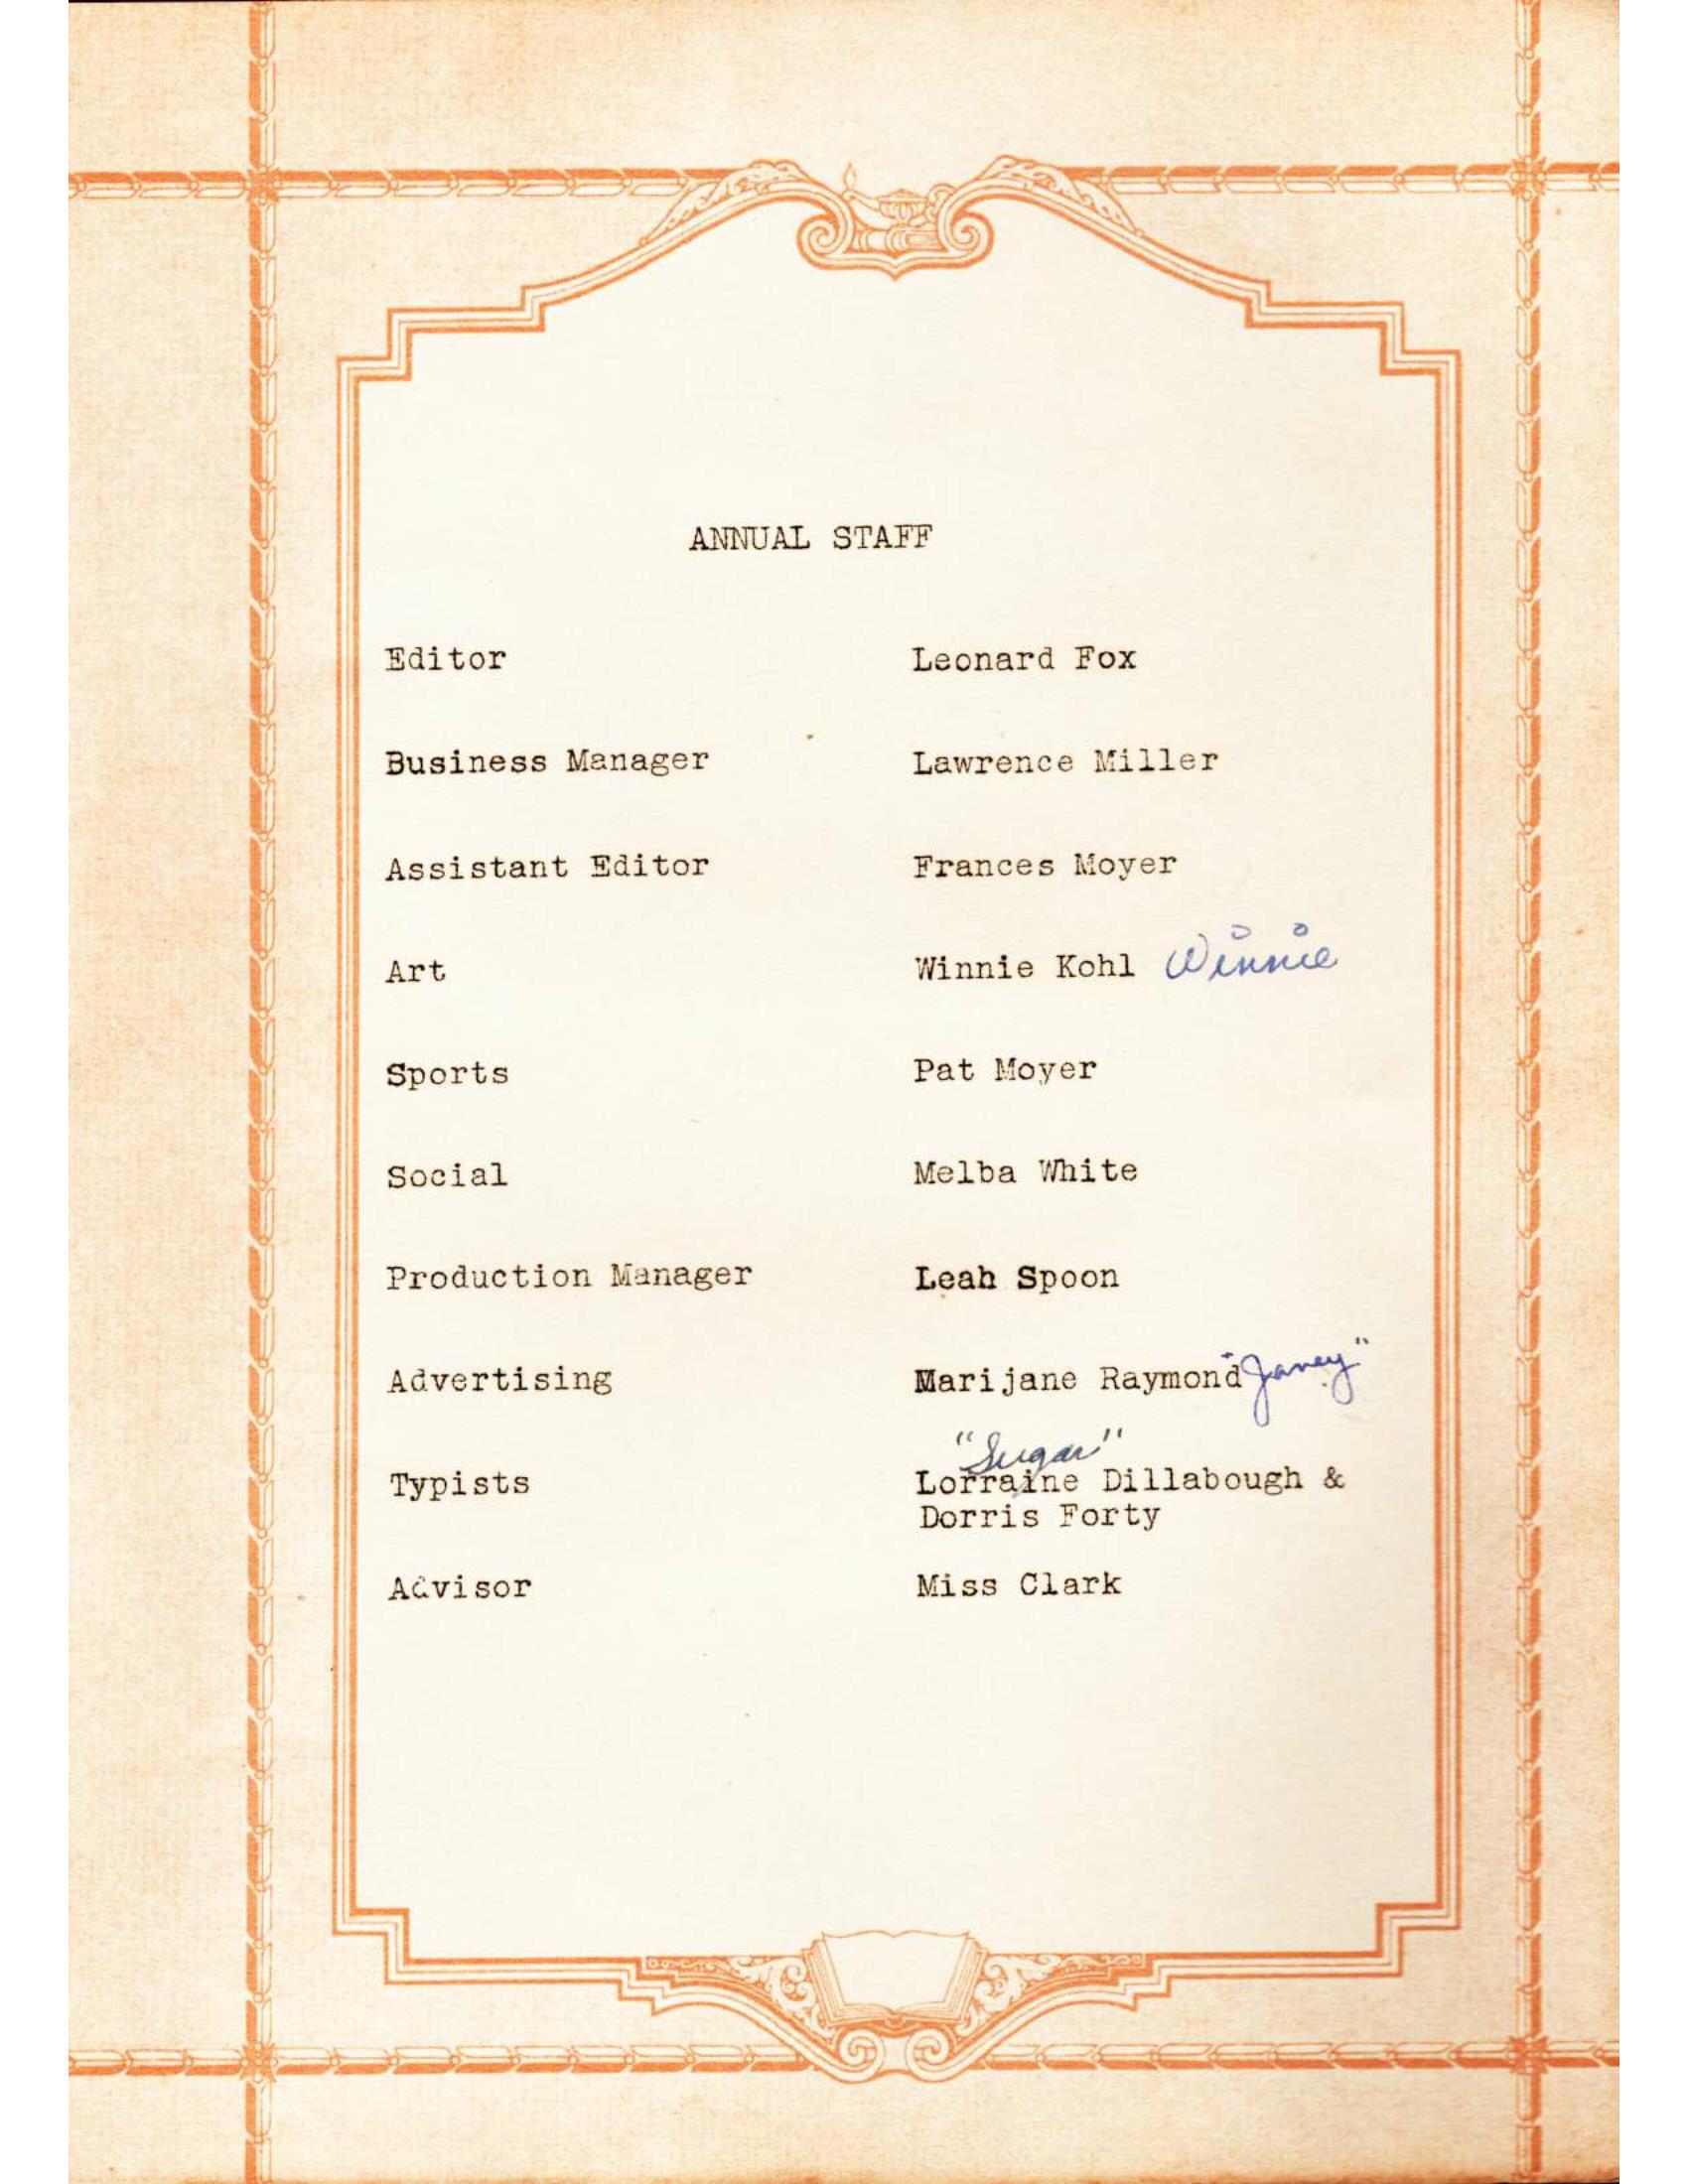 ANNUAL STAFF
Editor Leonard Fox
Business Manager Lawrence Miller
Assistant Editor Frances Moyer
Art Winnie Kohl Winnie
Sports Pat Moyer
Social Melba White
Production Manager Leah Spoon
Advertising Marijane Raymond "Janey"
"Sugar"
Typists Lorraine Dillabough &
Dorris Forty
Advisor Miss Clark